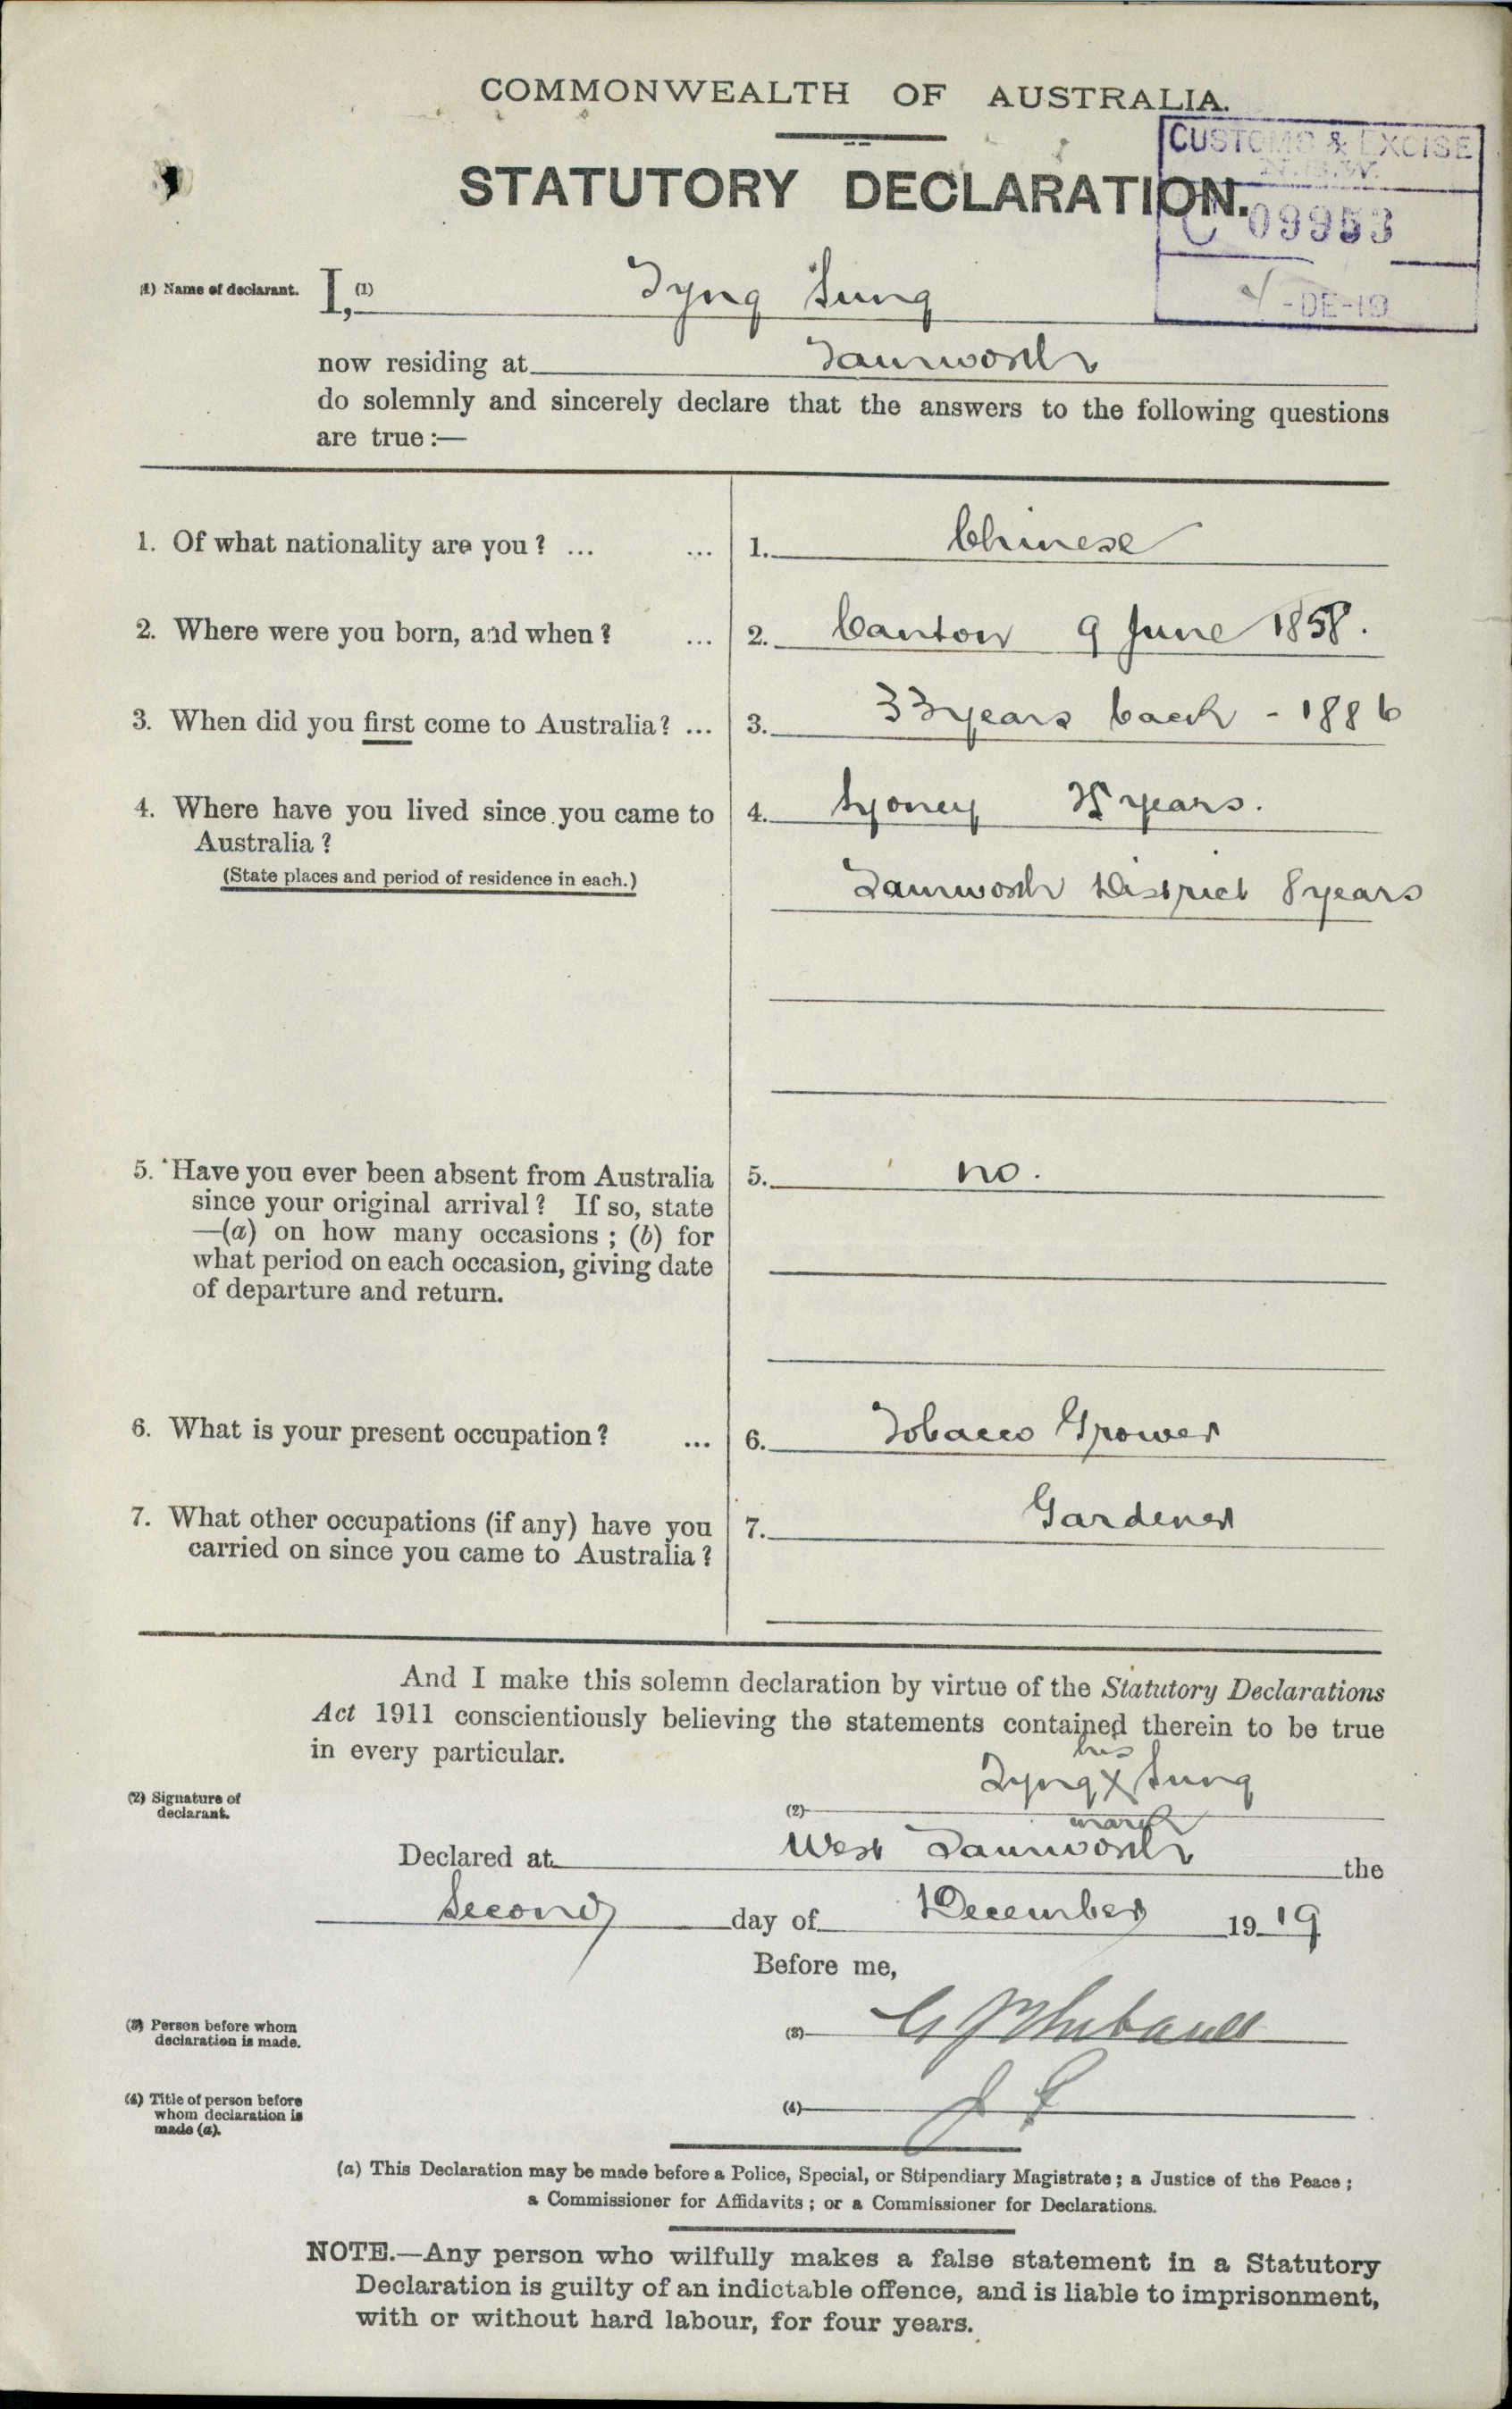 COMMONWEALTH OF AUSTRALIA.
STATUTORY DECLARATION.
CUSTOMS & EXCISE
N.S.W.
C 09953
4 -DE-19
(1) Name of declarant. I, (1) Tyng Sung
now residing at Tamworth
do solemnly and sincerely declare that the answers to the following questions
are true:—
1. Of what nationality are you? ... ... 1. Chinese
2. Where were you born, and when? ... 2. Canton 9 June 1858.
3. When did you first come to Australia? ... 3. 33 years back - 1886
4. Where have you lived since you came to 4. Sydney 25 years.
Australia?
(State places and period of residence in each.) Tamworth District 8 years
5. Have you ever been absent from Australia 5. no.
since your original arrival? If so, state
—(a) on how many occasions; (b) for
what period on each occasion, giving date
of departure and return.
6. What is your present occupation? ... 6. Tobacco Grower
7. What other occupations (if any) have you 7. Gardener
carried on since you came to Australia?
And I make this solemn declaration by virtue of the Statutory Declarations
Act 1911 conscientiously believing the statements contained therein to be true
in every particular.
his
(2) Signature of declarant. (2) Tyng X Sung
mark
Declared at West Tamworth the
Second day of December 1919
Before me,
(3) Person before whom
declaration is made. (3)
(4) Title of person before
whom declaration is
made (a). (4) J P
(a) This Declaration may be made before a Police, Special, or Stipendiary Magistrate; a Justice of the Peace;
a Commissioner for Affidavits; or a Commissioner for Declarations.
NOTE.—Any person who wilfully makes a false statement in a Statutory
Declaration is guilty of an indictable offence, and is liable to imprisonment,
with or without hard labour, for four years.